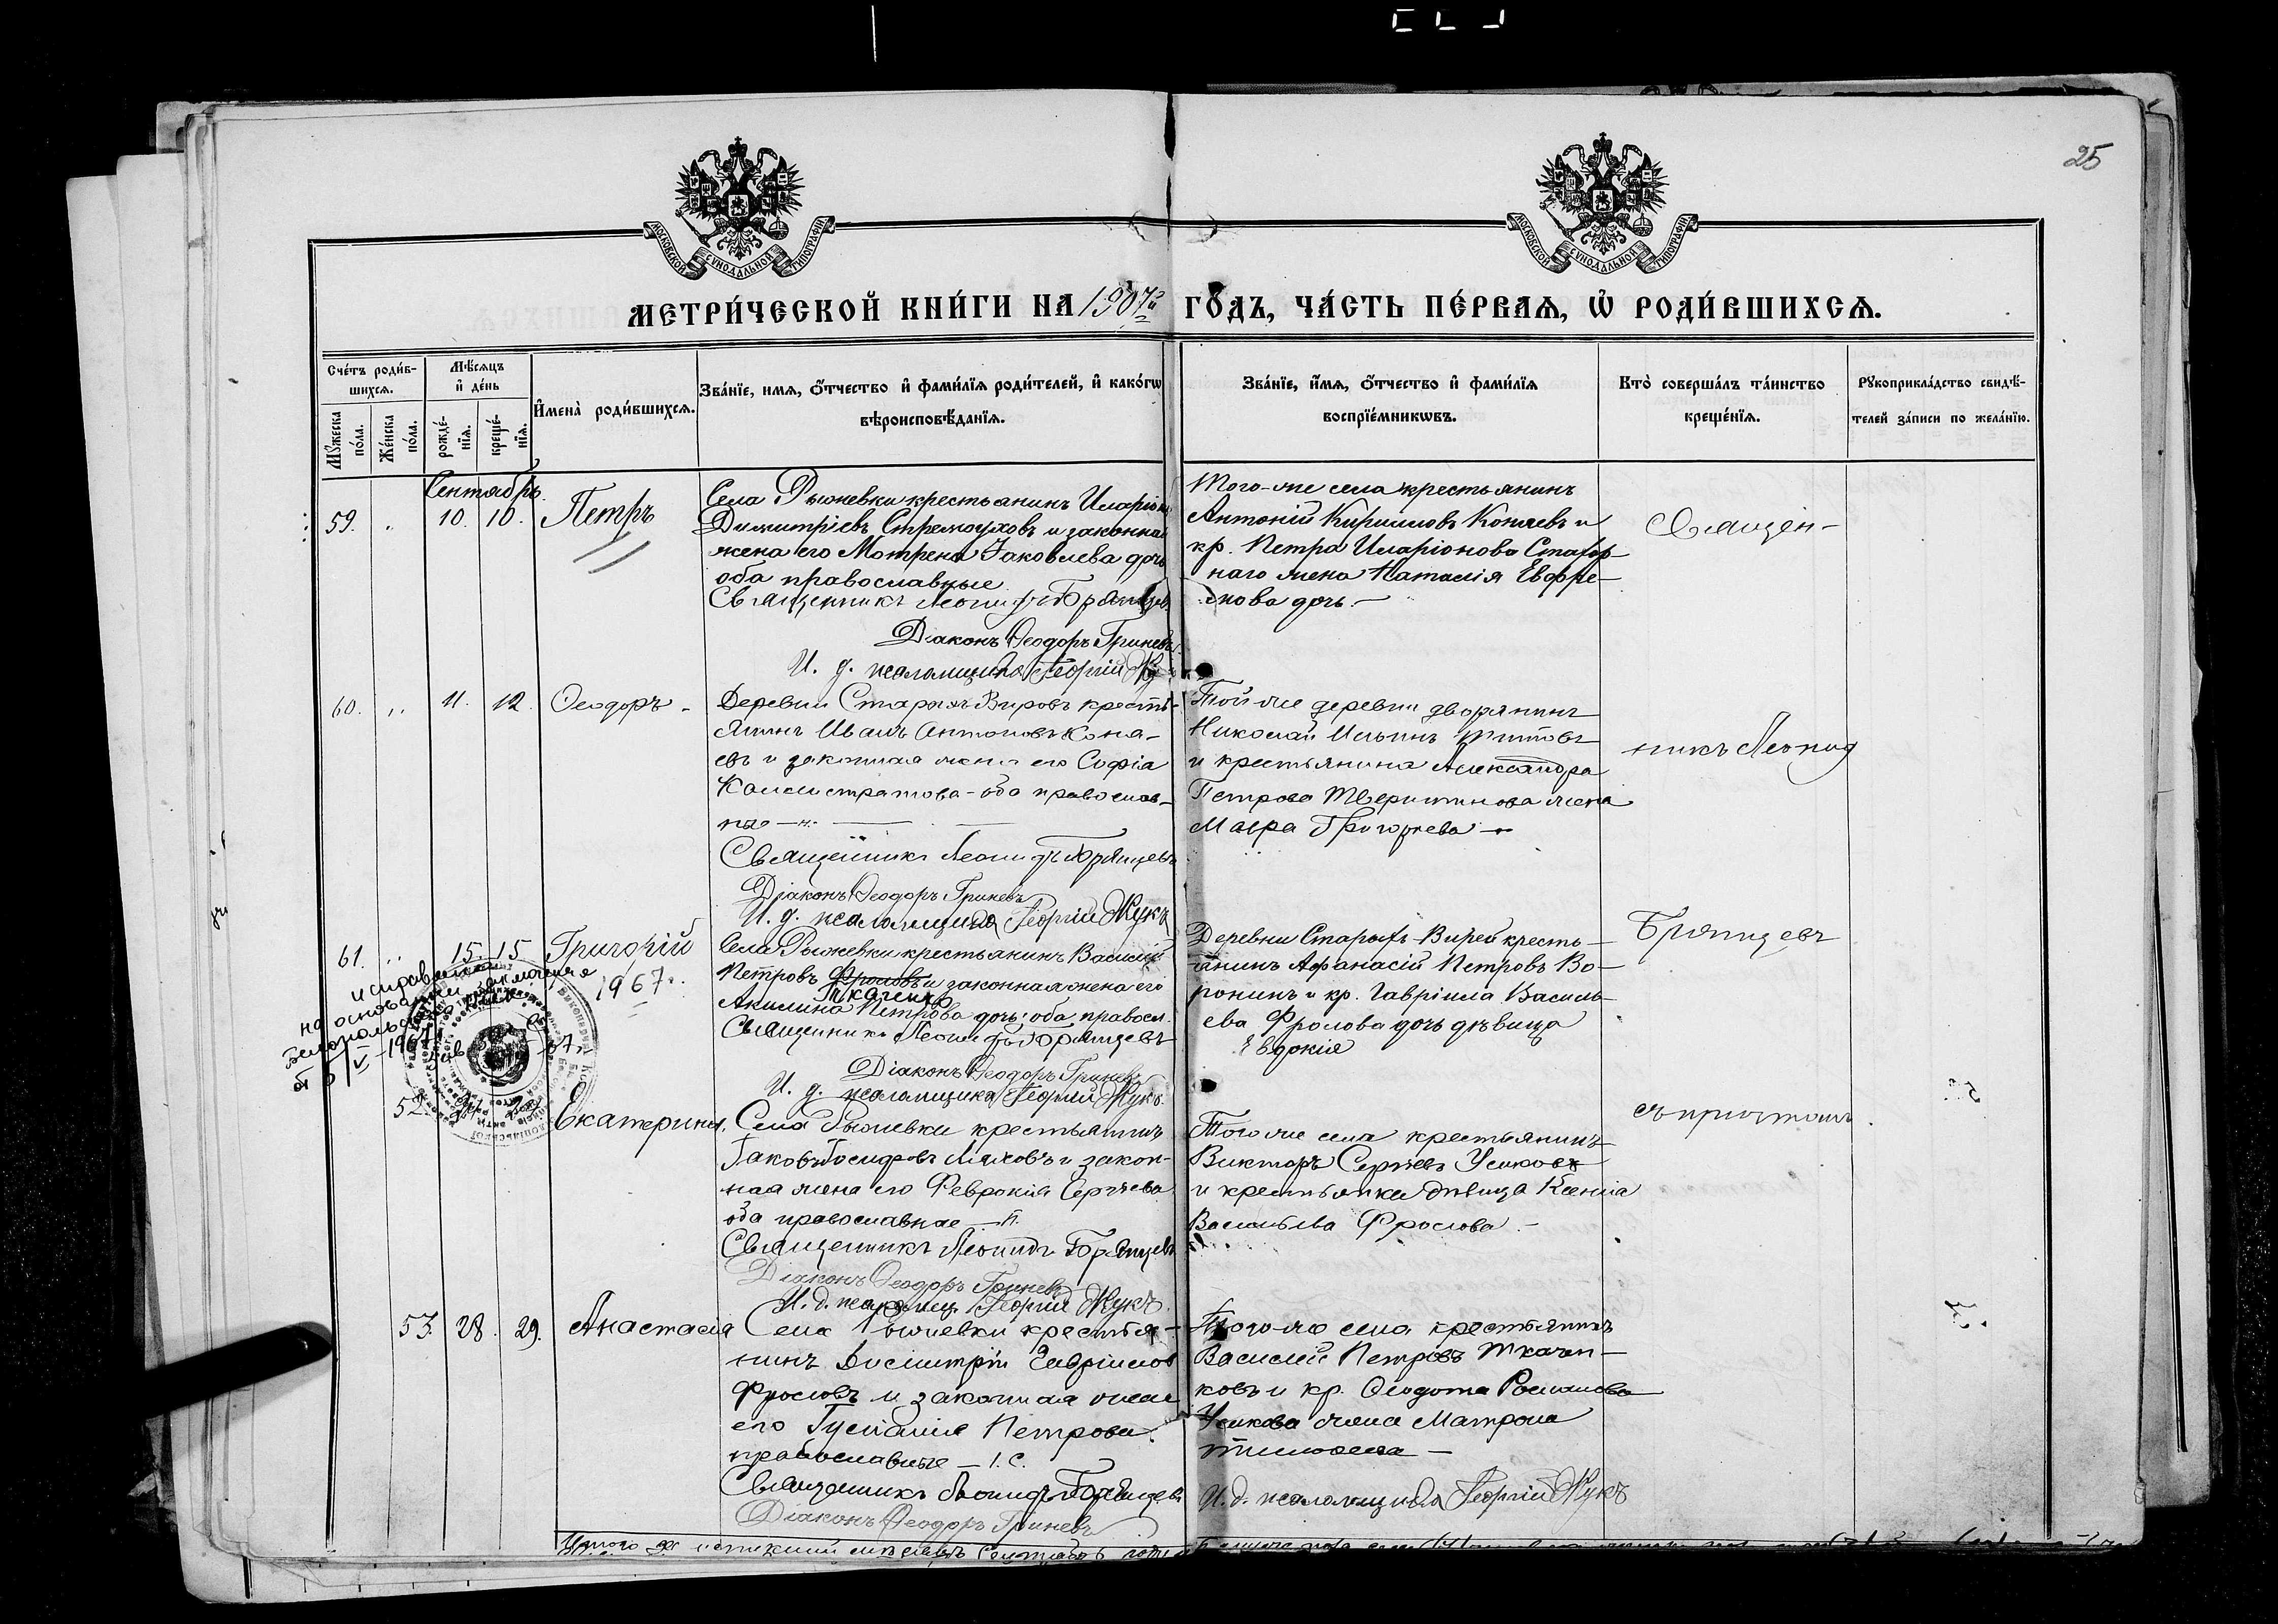 25
МОСКОВСКОЙ СѴНОДАЛЬНОЙ ТИПОГРАФІИ
МОСКОВСКОЙ СѴНОДАЛЬНОЙ ТИПОГРАФІИ
МЕТРИ́ЧЕСКОЙ КНИ́ГИ НА 1907й ГО́ДЪ, ЧА́СТЬ ПЕ́РВАѦ, Ѡ҆ РОДИ́ВШИХСѦ.
Сче́тъ роди́в-
шихсѧ.
Мꙋ́жеска по́ла.
Же́нска по́ла.
Мѣ́сѧцъ
и҆ де́нь
рожде́-
нїѧ.
креще́-
нїѧ.
И҆мена̀ роди́вшихсѧ.
Зва́нїе, имѧ, ѻ҆́тчество и҆ фами́лїѧ роди́телей, и҆ како́гѡ
вѣроисповѣ́данїѧ.
Зва́нїе, и҆́мѧ, ѻ҆́тчество и҆ фами́лїѧ
воспрїе́мникѡвъ.
Кто̀ соверша́лъ та́инство
креще́нїѧ.
Рꙋкоприкла́дство свидѣ́-
телей за́писи по жела́нїю.
Сентябрь
59. 10. 10. Петръ
Села Рыжевки крестьянинъ Иларіонъ
Димитріевъ Стремоуховъ и законная
жена его Мотрена Іаковлева дочь
оба православные
Священникъ Леонидъ Брянцевъ
Діаконъ Ѳеодоръ Гриневъ
И. д. псаломщика Георгій Жукъ
Того-же села крестьянинъ
Антоній Кирилловъ Коняевъ и
кр. Петра Иларіонова
наго жена Наталія
нова дочь.
Священ-
60. 11. 12. Ѳеодоръ
Деревни Старыхъ Вировъ кресть-
янинъ Иванъ Антоновъ Коня-
евъ и законная жена его Софія
Каллистратова - оба православ-
ные
Священникъ Леонидъ Брянцевъ
Діаконъ Ѳеодоръ Гриневъ
И. д. псаломщика Георгій Жукъ
Той же деревни дворянинъ
Николай Ильинъ
и крестьянина Александра
Петрова Тверитинова жена
Марѳа Григорьева
никъ Леонид
61. 15. 15 Григорій
1967 г.
Села Рыжевки крестьянинъ Василій
Петровъ Фроловъ и законная жена его
Ткаченко
Акилина Петрова дочь, оба правосл.
Священникъ Леонидъ Брянцевъ
Діаконъ Ѳеодоръ Гриневъ
И. д. псаломщика Георгій Жукъ
Деревни Старыхъ-Вирей кресть-
янинъ Аѳанасій Петровъ Во-
ронинъ и кр. Гавріила Василь-
ева Фролова дочь дѣвица
Евдокія
Брянцевъ
исправлен
на основании заключения
52. Екатерина.
Села Рыжевки крестьянинъ
Іаковъ Іосифовъ Ляховъ и закон-
ная жена его Феврокія Сергѣева
оба православные
Священникъ Леонидъ Брянцевъ
Діаконъ Ѳеодоръ Гриневъ
И. д. псаломщ. Георгій Жукъ.
Того же села крестьянинъ
Викторъ Сергѣевъ Усиковъ
и крестьянка дѣвица Ксенія
Васильева Фролова.
съ причтомъ.
53. 28. 29. Анастасія
Села Рыжевки крестья-
нинъ Димитрій Гавріиловъ
Фроловъ и законная жена
его Іуліанія Петрова.
православные
Священникъ Леонидъ Брянцевъ
Діаконъ Ѳеодоръ Гриневъ
Того-же села крестьянинъ
Василій Петровъ Ткачен-
ковъ и кр. Ѳеодота Романова
Усикова жена Матрона
И. д. псаломщика Георгій Жукъ